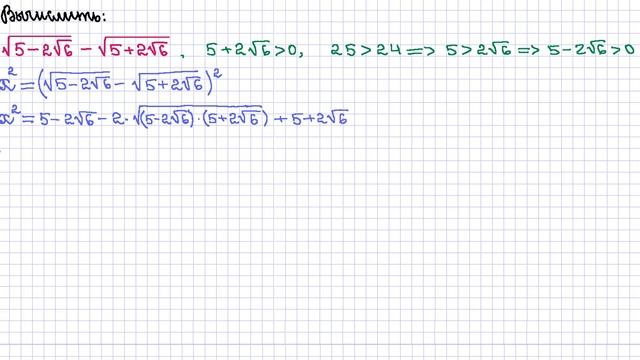 Вычислить:
√(5-2√6) - √(5+2√6), 5+2√6>0, 25>24 => 5>2√6 => 5-2√6>0
x² = (√(5-2√6) - √(5+2√6))²
x² = 5-2√6 - 2·√((5-2√6)·(5+2√6)) + 5+2√6